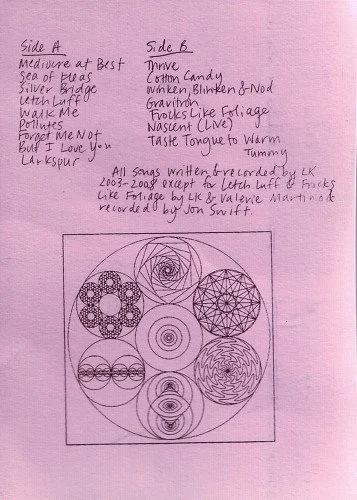 Side A
Mediocre at Best
Sea of Pleas
Silver Bridge
Letch Luff
Walk Me
Pollutes
Forget Me Not
But I Love You
Larkspur
Side B
Thrive
Cotton Candy
Winken, Blinken & Nod
Gravitron
Frocks Like Foliage
Nascent (Live)
Taste Tongue to Warm
Tummy
All songs written & recorded by LK
2003-2008 except for Letch Luff & Frocks
Like Foliage by LK & Valerie Martino &
recorded by Jon Swift.